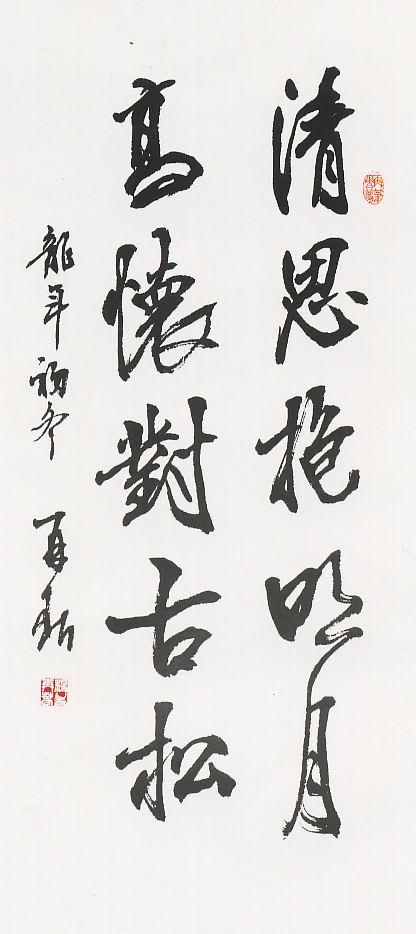 清思抱明月
高懷對古松
龍年初冬